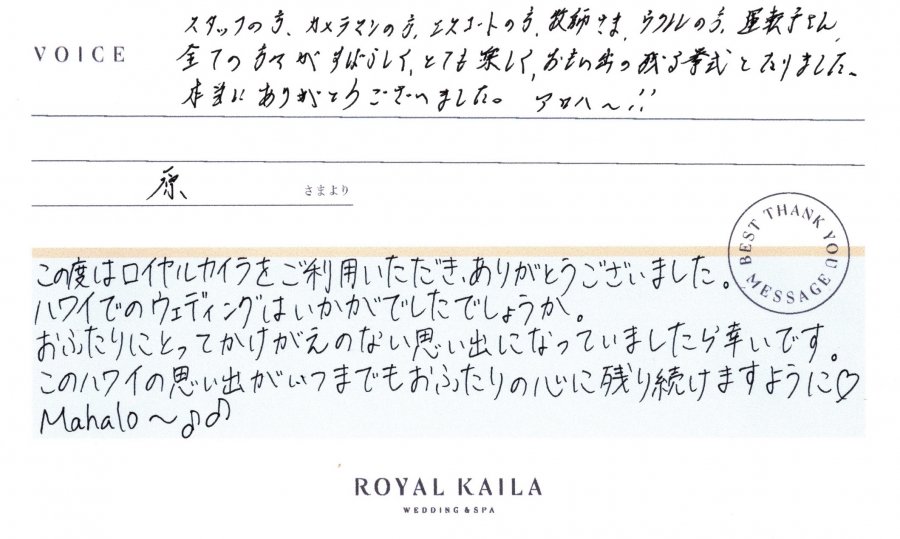 VOICE
スタッフの方、カメラマンの方、エスコートの方、牧師さま、ウクレレの方、運転手さん、
全ての方々がすばらしく、とても楽しく、おもい出の残る挙式となりました。
本当にありがとうございました。 アロハ〜!!
原 さまより
BEST THANK YOU MESSAGE
この度はロイヤルカイラをご利用いただき、ありがとうございました。
ハワイでのウェディングはいかがでしたでしょうか。
おふたりにとってかけがえのない思い出になっていましたら幸いです。
このハワイの思い出がいつまでもおふたりの心に残り続けますように♡
Mahalo〜♪♪
ROYAL KAILA
WEDDING & SPA